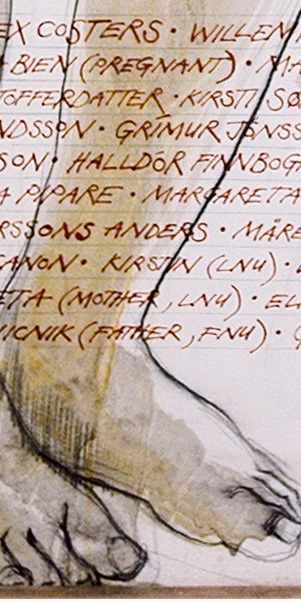 EX COSTERS · WILLEM
BIEN (PREGNANT) · MA
TOFFERDATTER · KIRSTI SØ
NDSSON · GRÍMUR JÓNSS
SON · HALLDÓR FINNBOG
A PIPARE · MARGARETA
RSSONS ANDERS · MÄRE
CANON · KIRSTIN (LNU) ·
ETA (MOTHER, LNU) · EL
VICNIK (FATHER, FNU) ·